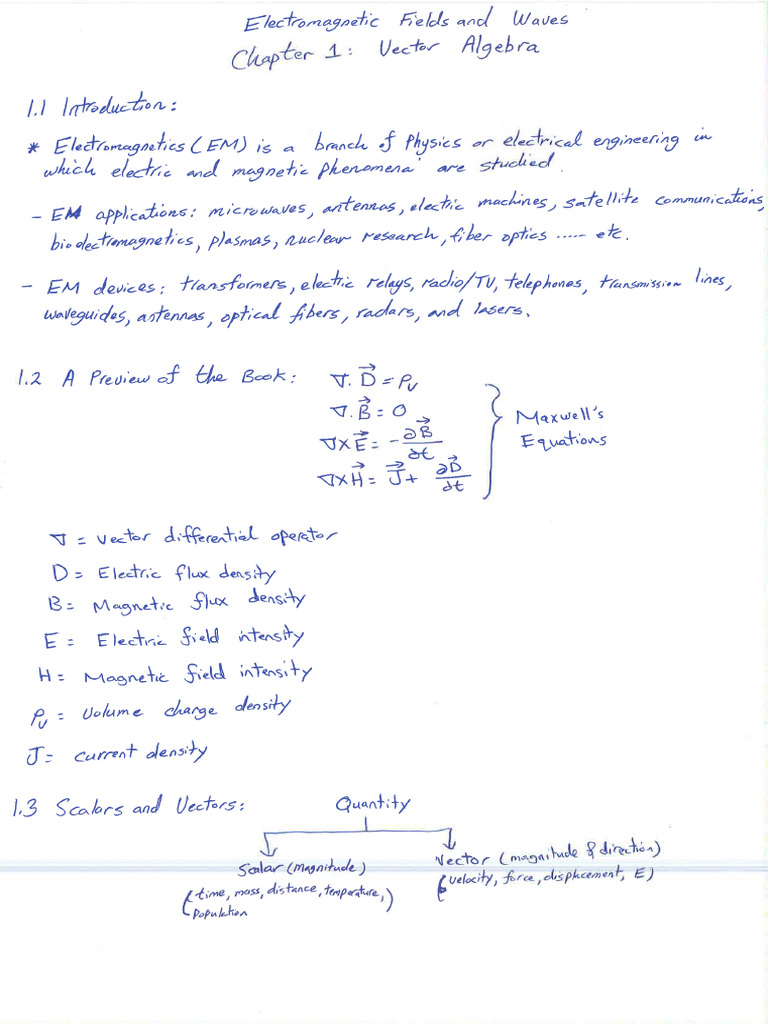 Electromagnetic Fields and Waves
Chapter 1: Vector Algebra
1.1 Introduction:
* Electromagnetics (EM) is a branch of Physics or electrical engineering in
which electric and magnetic phenomena are studied.
- EM applications: microwaves, antennas, electric machines, satellite communications,
bioelectromagnetics, plasmas, nuclear research, fiber optics ..... etc.
- EM devices: transformers, electric relays, radio/TV, telephones, transmission lines,
waveguides, antennas, optical fibers, radars, and lasers.
1.2 A Preview of the Book:
∇. D⃗ = ρv
∇. B⃗ = 0
∇×E⃗ = -∂B⃗/∂t
∇×H⃗ = J⃗ + ∂D⃗/∂t
Maxwell's
Equations
∇ = vector differential operator
D = Electric flux density
B = Magnetic flux density
E = Electric field intensity
H = Magnetic field intensity
ρv = Volume charge density
J = current density
1.3 Scalars and Vectors:
Quantity
Scalar (Magnitude)
(time, mass, distance, temperature,)
population
Vector (magnitude & direction)
(velocity, force, displacement, E)